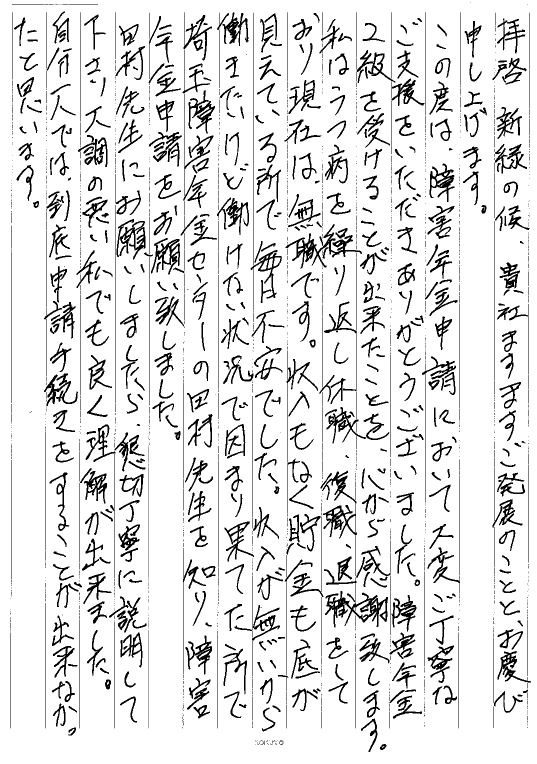 拝啓 新緑の候、貴社ますますご発展のことと、お慶び
申し上げます。
この度は、障害年金申請において大変ご丁寧な
ご支援をいただきありがとうございました。障害年金
2級を受けることが出来たことを、心から感謝致します。
私はうつ病を繰り返し休職、復職、退職をして
おり現在は、無職です。収入もなく貯金も底が
見えている所で毎日不安でした。収入が無いから
働きたいけど働けない状況で困まり果てた所で
埼玉障害年金センターの田村先生を知り、障害
年金申請をお願い致しました。
田村先生にお願いしましたら、懇切丁寧に説明して
下さり大調の悪い私でも良く理解が出来ました。
自分一人では、到底申請手続きをすることが出来なか
たと思います。
KOKUYO